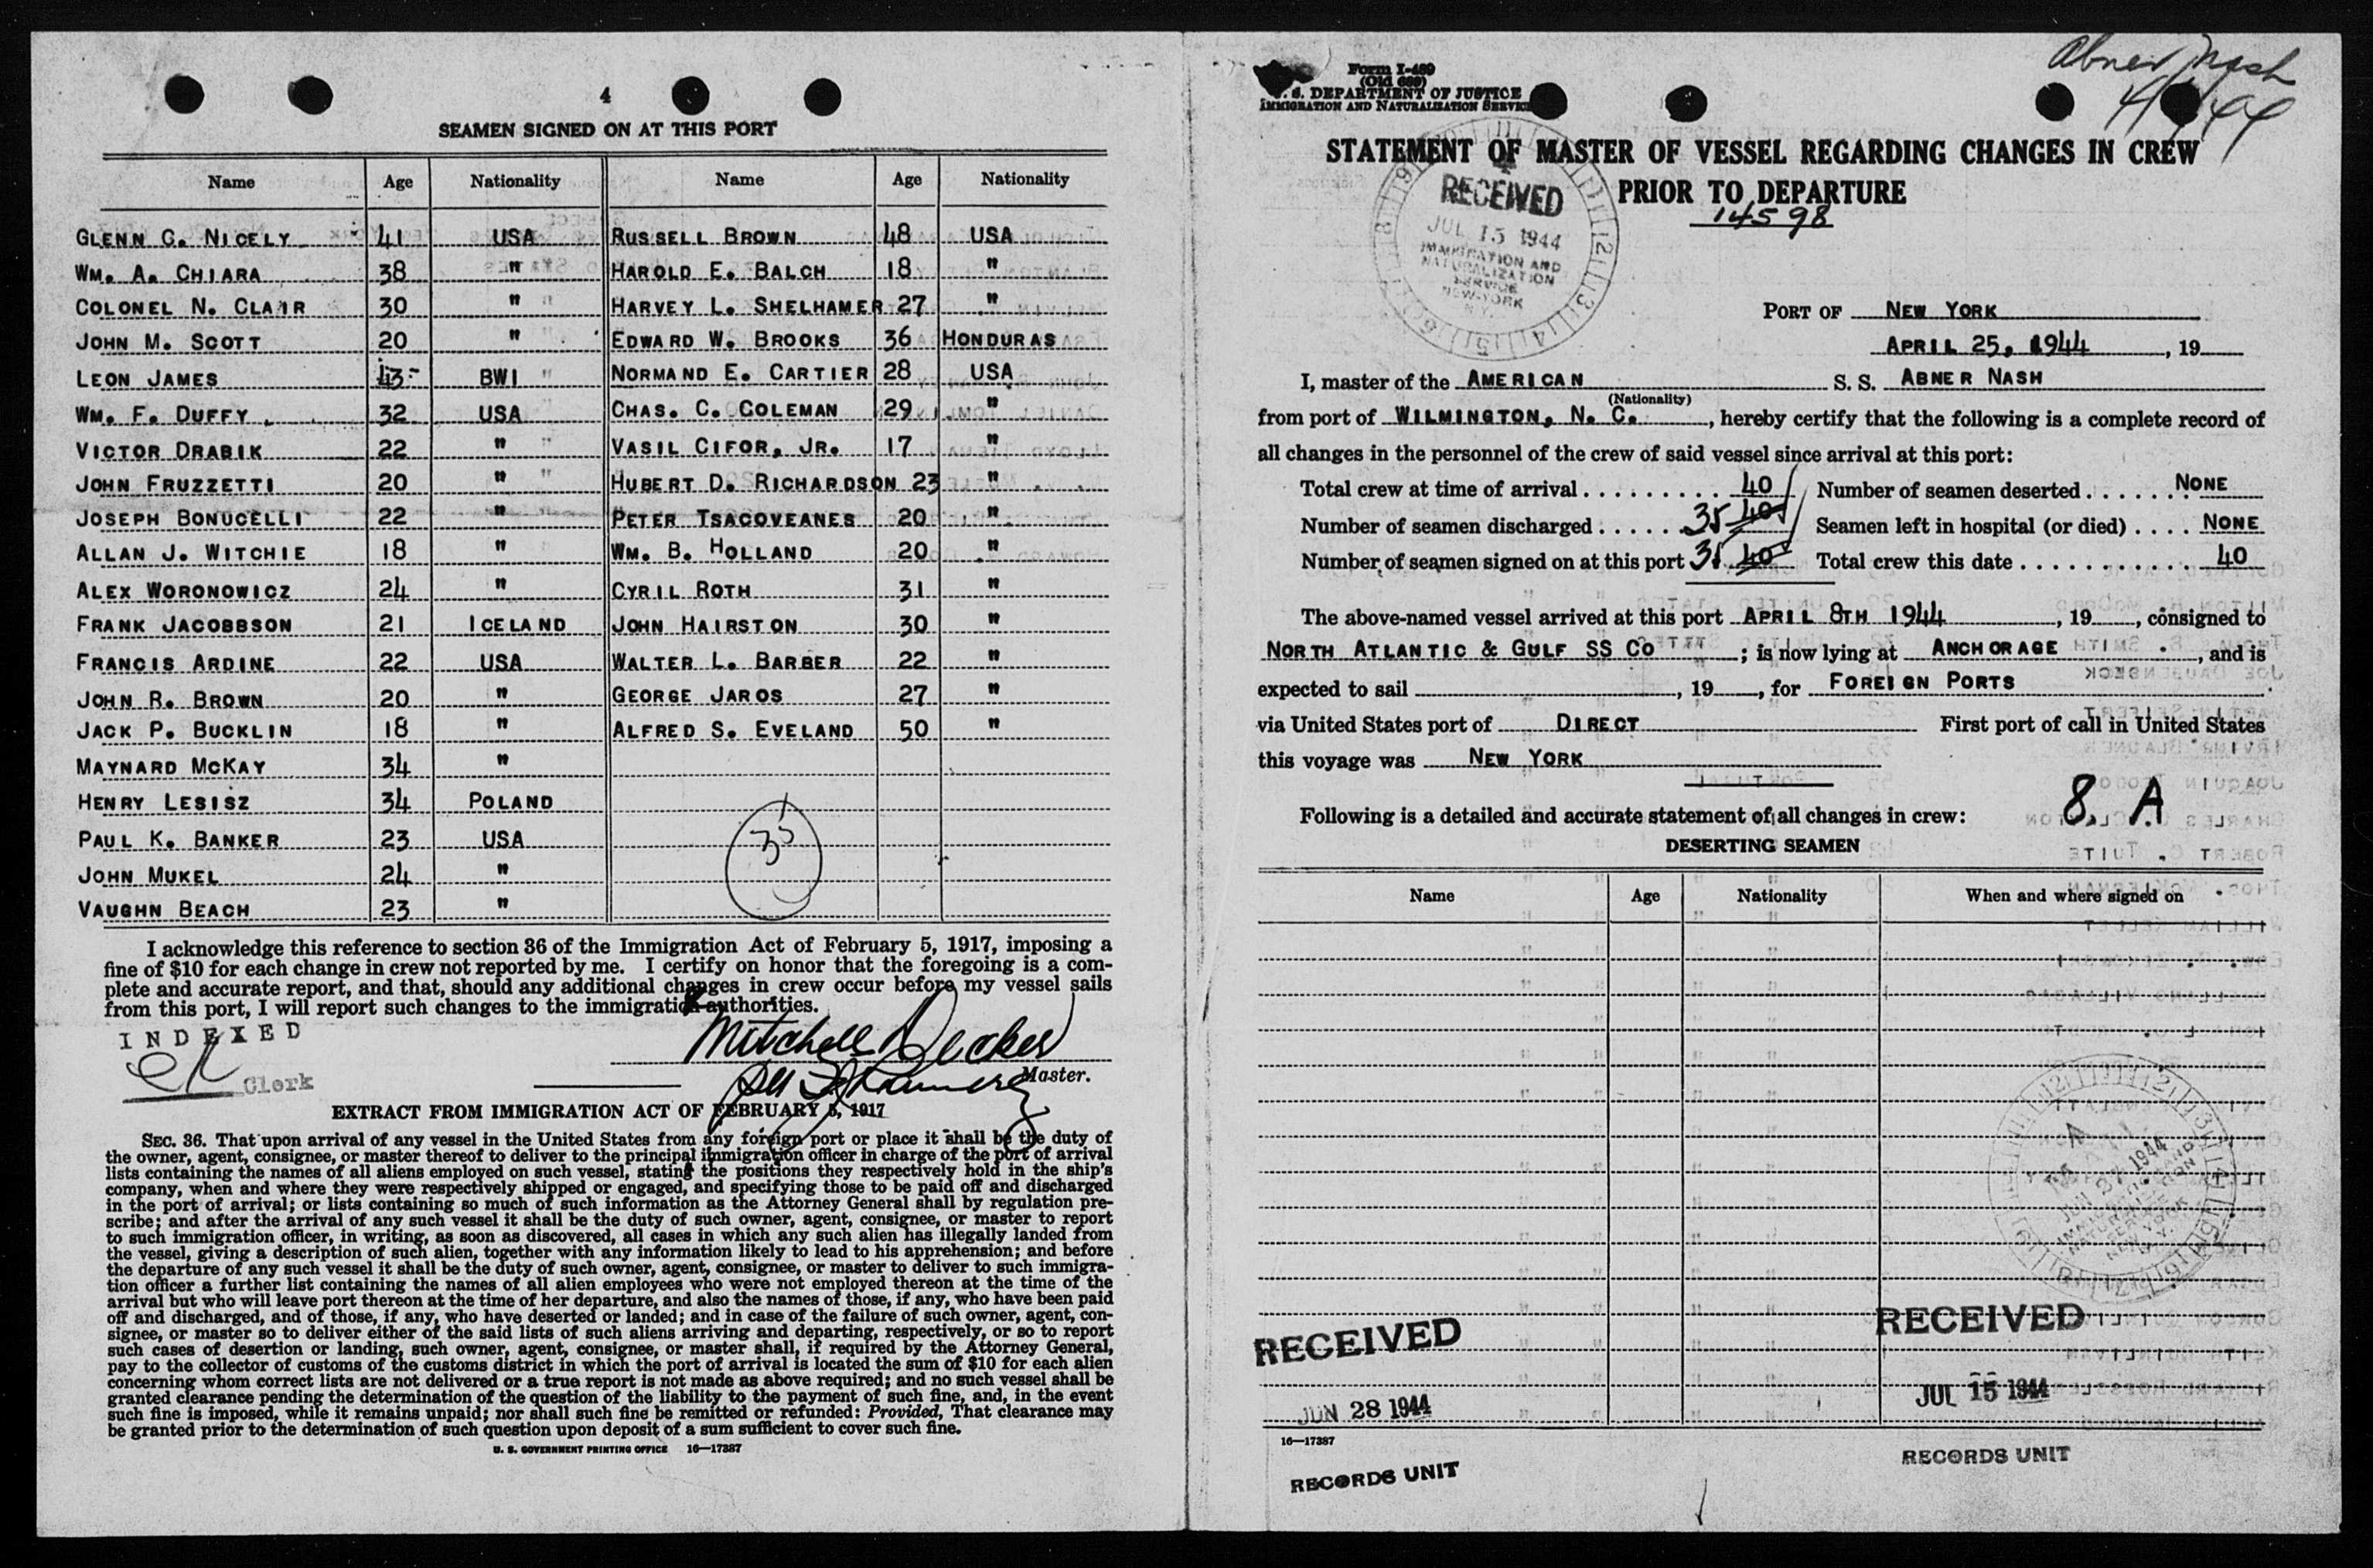 4
SEAMEN SIGNED ON AT THIS PORT
Name Age Nationality Name Age Nationality
GLENN C. NICELY 41 USA RUSSELL BROWN 48 USA
WM. A. CHIARA 38 " HAROLD E. BALCH 18 "
COLONEL N. CLAIR 30 " HARVEY L. SHELHAMER 27 "
JOHN M. SCOTT 20 " EDWARD W. BROOKS 36 HONDURAS
LEON JAMES 43 BWI NORMAND E. CARTIER 28 USA
WM. F. DUFFY 32 USA CHAS. C. COLEMAN 29 "
VICTOR DRABIK 22 " VASIL CIFOR, JR. 17 "
JOHN FRUZZETTI 20 " HUBERT D. RICHARDSON 23 "
JOSEPH BONUCELLI 22 " PETER TSACOVEANES 20 "
ALLAN J. WITCHIE 18 " WM. B. HOLLAND 20 "
ALEX WORONOWICZ 24 " CYRIL ROTH 31 "
FRANK JACOBBSON 21 ICELAND JOHN HAIRSTON 30 "
FRANCIS ARDINE 22 USA WALTER L. BARBER 22 "
JOHN R. BROWN 20 " GEORGE JAROS 27 "
JACK P. BUCKLIN 18 " ALFRED S. EVELAND 50 "
MAYNARD MCKAY 34 "
HENRY LESISZ 34 POLAND
PAUL K. BANKER 23 USA
35
JOHN MUKEL 24 "
VAUGHN BEACH 23 "
I acknowledge this reference to section 36 of the Immigration Act of February 5, 1917, imposing a
fine of $10 for each change in crew not reported by me. I certify on honor that the foregoing is a com-
plete and accurate report, and that, should any additional changes in crew occur before my vessel sails
from this port, I will report such changes to the immigration authorities.
INDEXED
Mitchell Decker
Clerk
Master.
EXTRACT FROM IMMIGRATION ACT OF FEBRUARY 5, 1917
SEC. 36. That upon arrival of any vessel in the United States from any foreign port or place it shall be the duty of
the owner, agent, consignee, or master thereof to deliver to the principal immigration officer in charge of the port of arrival
lists containing the names of all aliens employed on such vessel, stating the positions they respectively hold in the ship's
company, when and where they were respectively shipped or engaged, and specifying those to be paid off and discharged
in the port of arrival; or lists containing so much of such information as the Attorney General shall by regulation pre-
scribe; and after the arrival of any such vessel it shall be the duty of such owner, agent, consignee, or master to report
to such immigration officer, in writing, as soon as discovered, all cases in which any such alien has illegally landed from
the vessel, giving a description of such alien, together with any information likely to lead to his apprehension; and before
the departure of any such vessel it shall be the duty of such owner, agent, consignee, or master to deliver to such immigra-
tion officer a further list containing the names of all alien employees who were not employed thereon at the time of the
arrival but who will leave port thereon at the time of her departure, and also the names of those, if any, who have been paid
off and discharged, and of those, if any, who have deserted or landed; and in case of the failure of such owner, agent, con-
signee, or master so to deliver either of the said lists of such aliens arriving and departing, respectively, or so to report
such cases of desertion or landing, such owner, agent, consignee, or master shall, if required by the Attorney General,
pay to the collector of customs of the customs district in which the port of arrival is located the sum of $10 for each alien
concerning whom correct lists are not delivered or a true report is not made as above required; and no such vessel shall be
granted clearance pending the determination of the question of the liability to the payment of such fine, and, in the event
such fine is imposed, while it remains unpaid; nor shall such fine be remitted or refunded: Provided, That clearance may
be granted prior to the determination of such question upon deposit of a sum sufficient to cover such fine.
U. S. GOVERNMENT PRINTING OFFICE 16—17387
Abner Nash
Form I-489
(Old 689)
U. S. DEPARTMENT OF JUSTICE
IMMIGRATION AND NATURALIZATION SERVICE
STATEMENT OF MASTER OF VESSEL REGARDING CHANGES IN CREW
PRIOR TO DEPARTURE
14598
RECEIVED
JUL 15 1944
IMMIGRATION AND
NATURALIZATION
SERVICE
NEW YORK
N.Y.
PORT OF NEW YORK
APRIL 25, 1944, 19
I, master of the AMERICAN S. S. ABNER NASH
(Nationality)
from port of WILMINGTON, N. C., hereby certify that the following is a complete record of
all changes in the personnel of the crew of said vessel since arrival at this port:
Total crew at time of arrival 40 Number of seamen deserted NONE
Number of seamen discharged 35 40 Seamen left in hospital (or died) NONE
Number of seamen signed on at this port 35 40 Total crew this date 40
The above-named vessel arrived at this port APRIL 8TH 1944, 19, consigned to
NORTH ATLANTIC & GULF SS CO; is now lying at ANCHORAGE, and is
expected to sail, 19, for FOREIGN PORTS
via United States port of DIRECT First port of call in United States
this voyage was NEW YORK
8. A
Following is a detailed and accurate statement of all changes in crew:
DESERTING SEAMEN
Name Age Nationality When and where signed on
RECEIVED
JUN 28 1944
RECEIVED
JUL 15 1944
16—17387
RECORDS UNIT
RECORDS UNIT